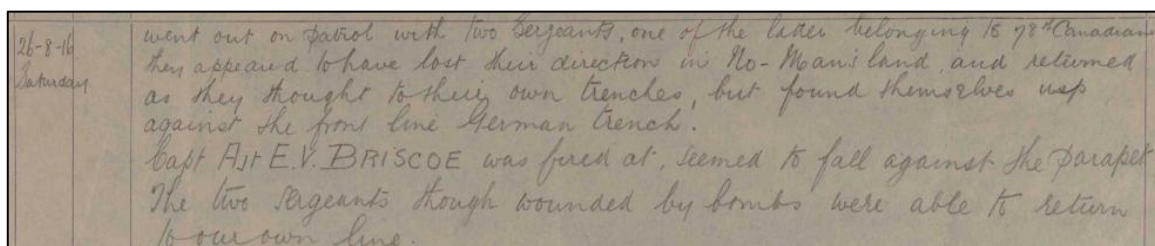 26-8-16
Saturday
went out on patrol with two Sergeants, one of the latter belonging to 78th Canadians
they appeared to have lost their direction in No-Man's land, and returned
as they thought to their own trenches, but found themselves up
against the front line German trench.
Capt Ajt E.V. BRISCOE was fired at, seemed to fall against the parapet
The two Sergeants though wounded by bombs were able to return
to our own line.